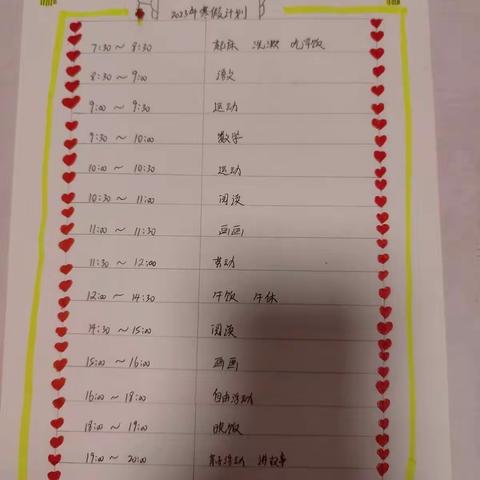 2023年寒假计划
7:30～8:30 起床 洗漱 吃早饭
8:30～9:00 语文
9:00～9:30 运动
9:30～10:00 数学
10:00～10:30 运动
10:30～11:00 阅读
11:00～11:30 画画
11:30～12:00 劳动
12:00～14:30 午饭 午休
14:30～15:00 阅读
15:00～16:00 画画
16:00～18:00 自由活动
18:00～19:00 晚饭
19:00～20:00 亲子活动 讲故事